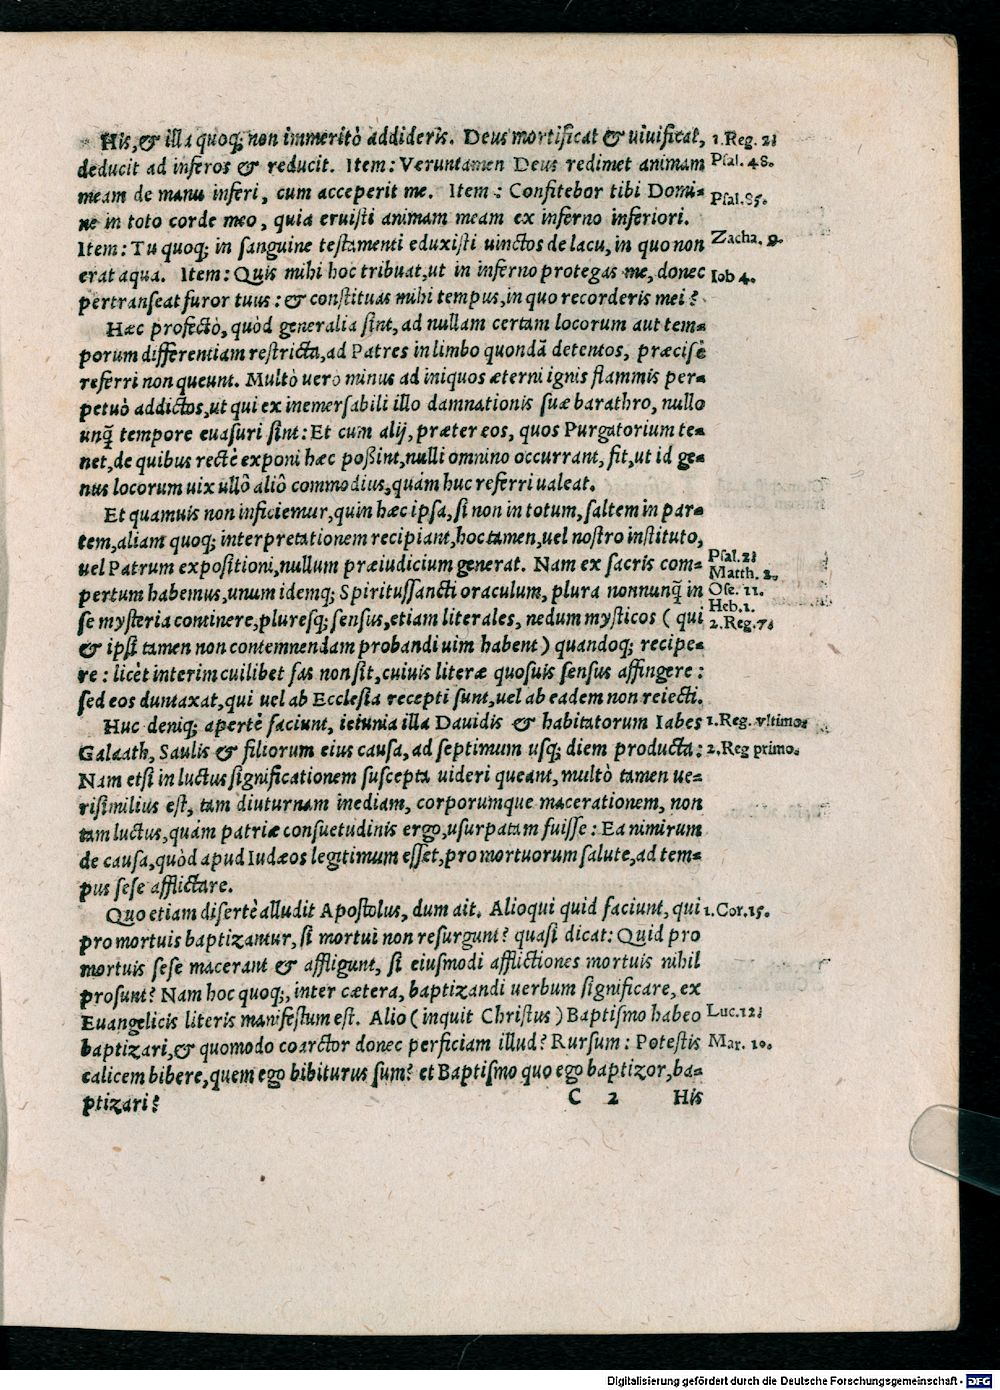 His, & illa quoq; non immeritò addideris. Deus mortificat & uiuificat, 1.Reg. 2.
deducit ad inferos & reducit. Item: Veruntamen Deus redimet animam Psal. 48.
meam de manu inferi, cum acceperit me. Item: Confitebor tibi Domi= Psal.85.
ne in toto corde meo, quia eruisti animam meam ex inferno inferiori.
Item: Tu quoq; in sanguine testamenti eduxisti uinctos de lacu, in quo non Zacha. 9.
erat aqua. Item: Quis mihi hoc tribuat, ut in inferno protegas me, donec Iob 4.
pertranseat furor tuus: & constituas mihi tempus, in quo recorderis mei?
Hæc profectò, quòd generalia sint, ad nullam certam locorum aut tem=
porum differentiam restricta, ad Patres in limbo quondã detentos, præcisè
referri non queunt. Multò uero minus ad iniquos æterni ignis flammis per=
petuò addictos, ut qui ex inemersabili illo damnationis suæ barathro, nullo
unq̃ tempore euasuri sint: Et cum alij, præter eos, quos Purgatorium te=
net, de quibus rectè exponi hæc poßint, nulli omnino occurrant, fit, ut id ge=
nus locorum uix ullô aliô commodius, quàm huc referri ualeat.
Et quamuis non inficiemur, quin hæc ipsa, si non in totum, saltem in par=
tem, aliam quoq; interpretationem recipiant, hoc tamen, uel nostro instituto,
uel Patrum expositioni, nullum præiudicium generat. Nam ex sacris com= Psal.2.
Matth. 2.
pertum habemus, unum idemq; Spiritussancti oraculum, plura nonnunq̃ in Ose. 11.
Heb.1.
se mysteria continere, pluresq; sensus, etiam literales, nedum mysticos ( qui 2.Reg.7.
& ipsi tamen non contemnendam probandi uim habent ) quandoq; recipe=
re: licèt interim cuilibet fas non sit, cuiuis literæ quosuis sensus affingere:
sed eos duntaxat, qui uel ab Ecclesia recepti sunt, uel ab eadem non reiecti.
Huc deniq; apertè faciunt, ieiunia illa Dauidis & habitatorum Iabes 1.Reg. vltimo.
Galaath, Saulis & filiorum eius causa, ad septimum usq; diem producta: 2.Reg primo.
Nam etsi in luctus significationem suscepta uideri queant, multò tamen ue=
risimilius est, tam diuturnam inediam, corporumque macerationem, non
tam luctus, quàm patriæ consuetudinis ergo, usurpatam fuisse: Ea nimirum
de causa, quòd apud Iudæos legitimum esset, pro mortuorum salute, ad tem=
pus sese afflictare.
Quo etiam disertè alludit Apostolus, dum ait. Alioqui quid faciunt, qui 1.Cor.15.
pro mortuis baptizantur, si mortui non resurgunt? quasi dicat: Quid pro
mortuis sese macerant & affligunt, si eiusmodi afflictiones mortuis nihil
prosunt? Nam hoc quoq;, inter cætera, baptizandi uerbum significare, ex
Euangelicis literis manifestum est. Alio ( inquit Christus ) Baptismo habeo Luc.12.
baptizari, & quomodo coarctor donec perficiam illud? Rursum: Potestis Mar. 10.
calicem bibere, quem ego bibiturus sum? et Baptismo quo ego baptizor, ba=
ptizari?
C 2 His
Digitalisierung gefördert durch die Deutsche Forschungsgemeinschaft - DFG